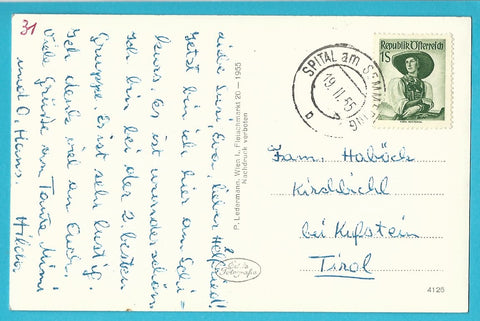 31
Liebe Susi, Evi, lieber Helfried!
Jetzt bin ich hier am Schi=
kurs. Es ist wunderschön.
Ich bin bei der 2. besten
Gruppe. Es ist sehr lustig.
Ich denke viel an Euch.
Viele Grüße an Tante Mimi
und O. Hans. Hilda.
P. Ledermann, Wien I., Fleischmarkt 20 — 1955
Nachdruck verboten
Echte Fotografie
SPITAL am SEMMERING
19. II. 55
b
Republik Österreich
1S
Fam. Haböck
Kirchbichl
bei Kufstein
Tirol
4125